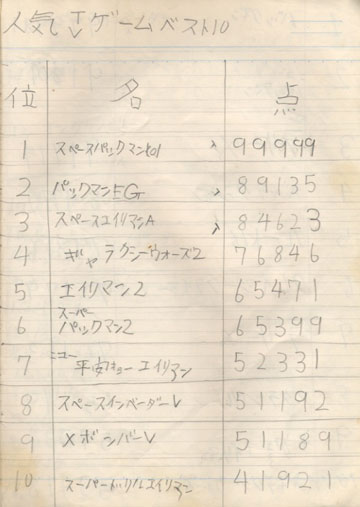 人気TVゲームベスト10
位 名 点
1 スペースパックマン 99999
2 パックマンEG 89135
3 スペースエイリマンA 84623
4 ギャラクシーウォーズ2 76846
5 エイリマン2 65471
6 スーパーパックマン2 65399
7 ニュー平安 エイリマン 52331
8 スペースインベーダーV 51192
9 XボンバーV 51189
10 スーパー エイリマン 41921